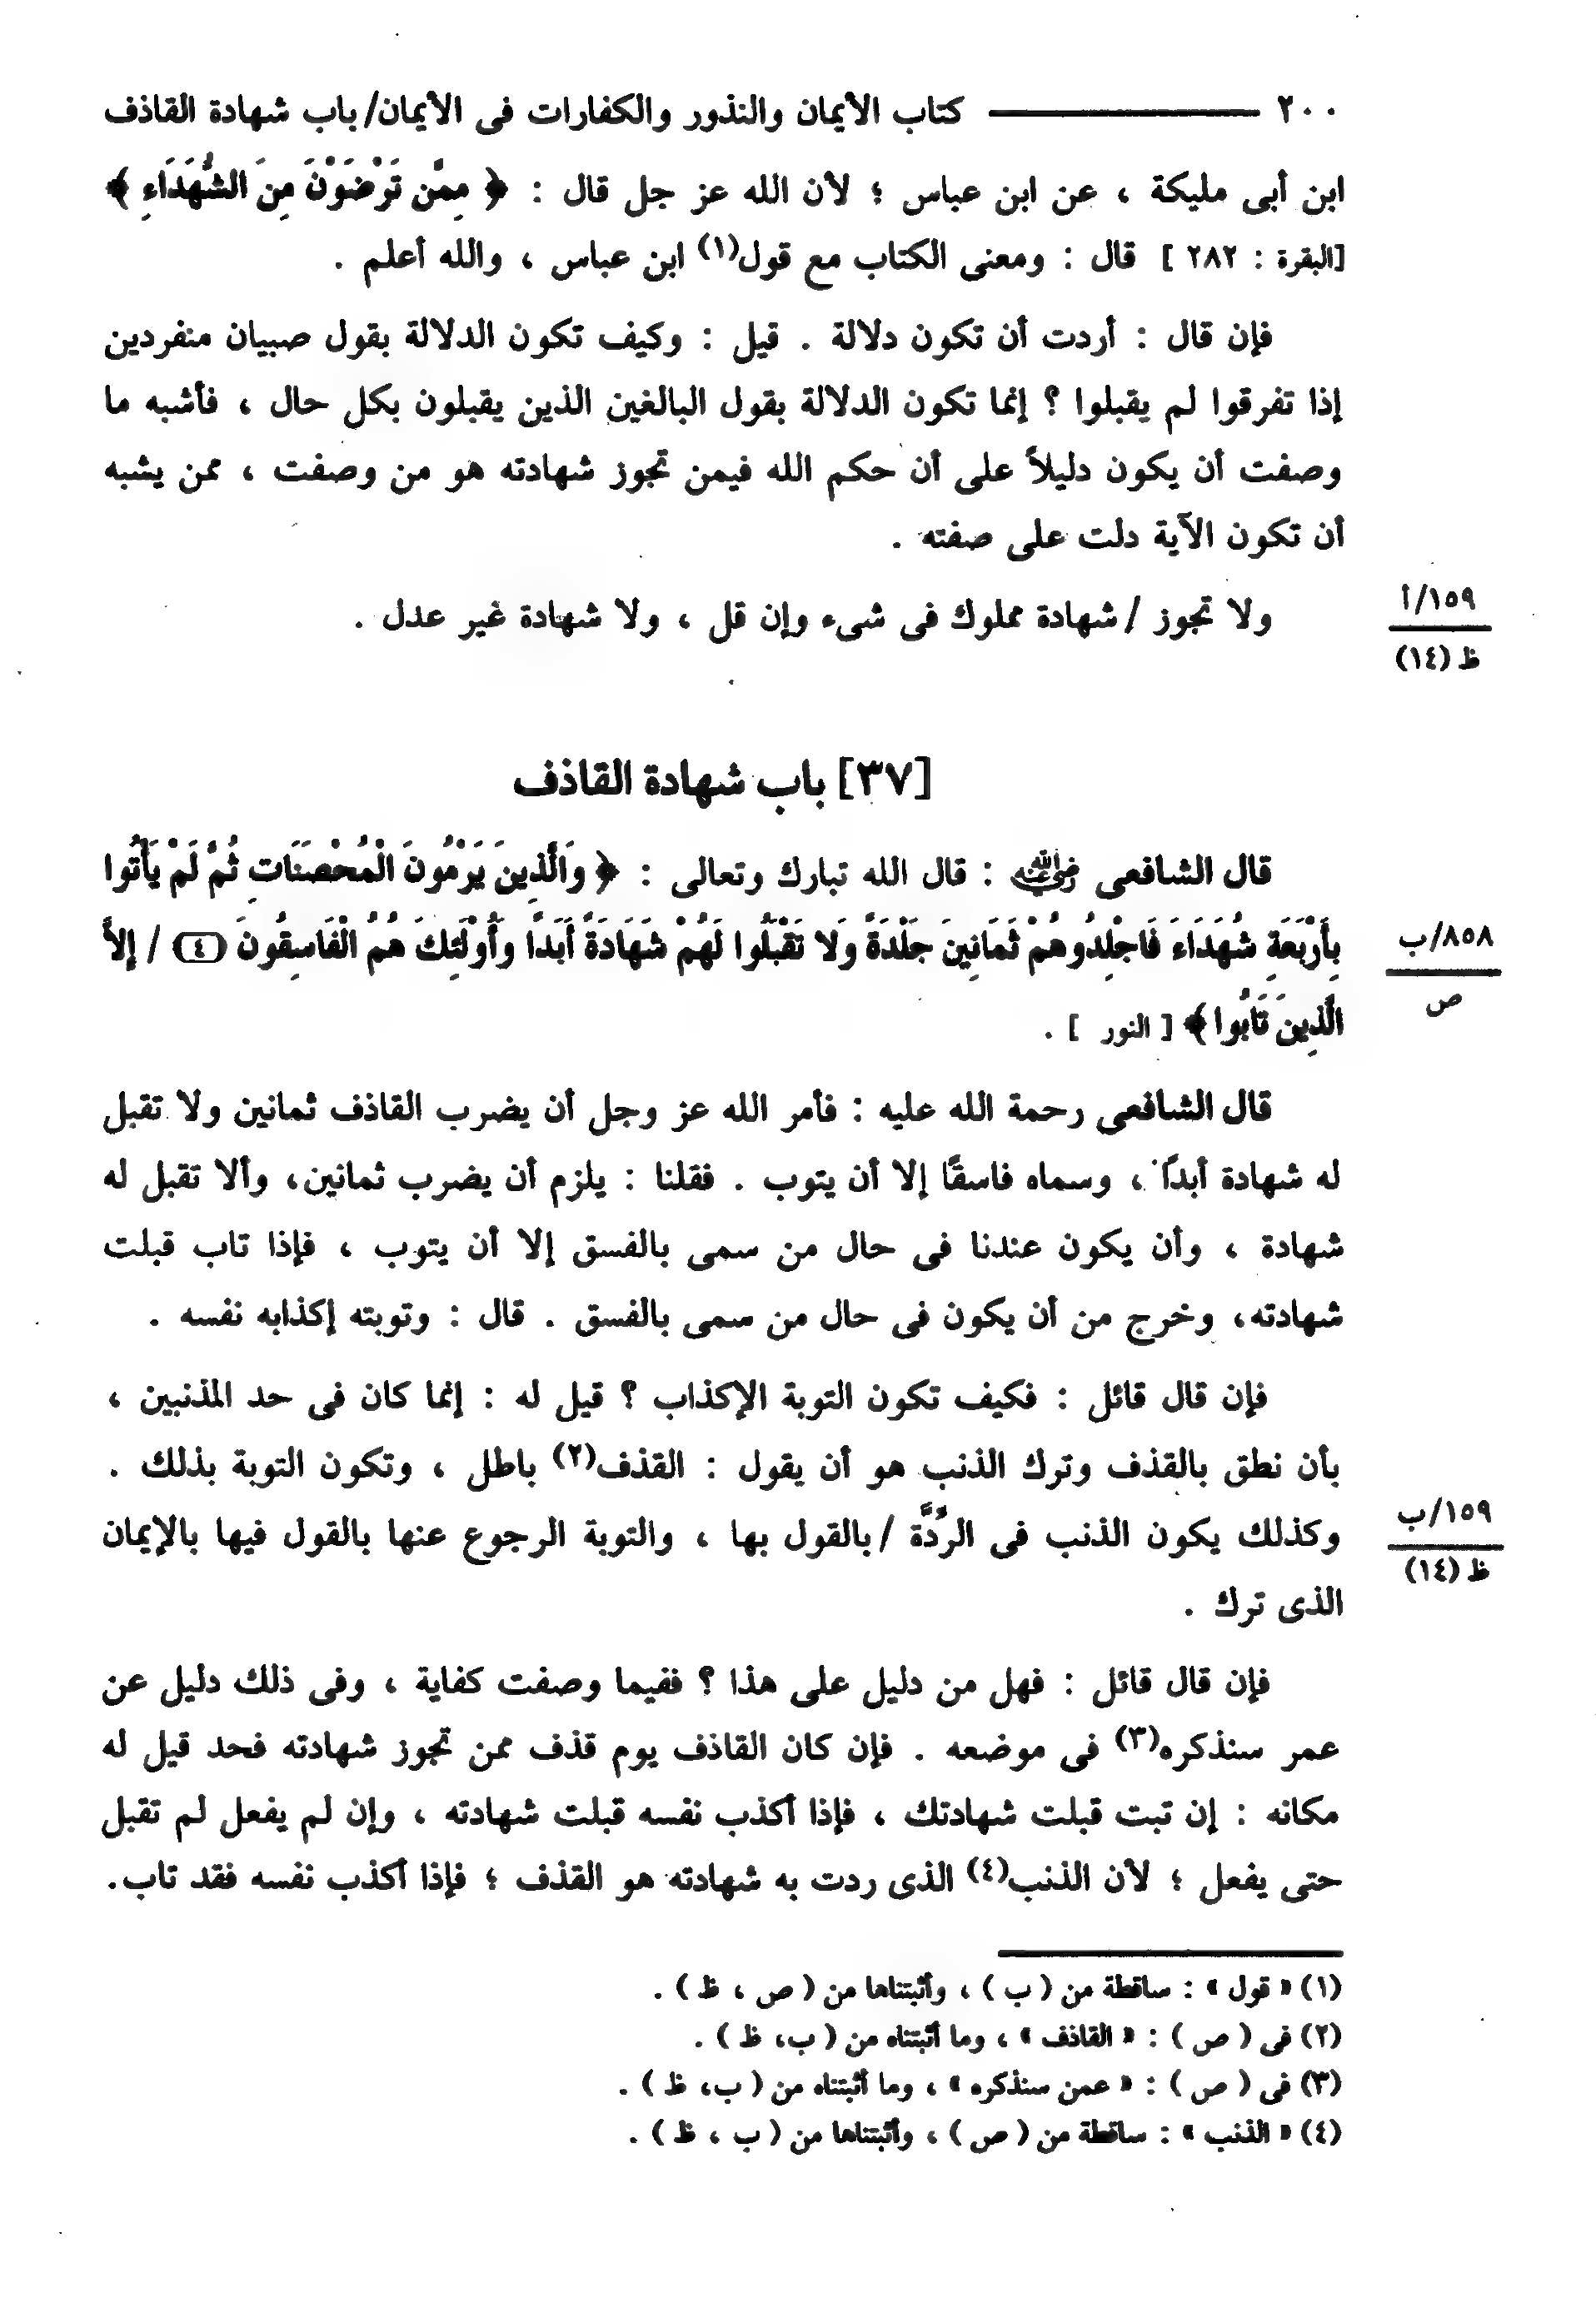 ٢٠٠ ــــــــــــــــ كتاب الأيمان والنذور والكفارات فى الأيمان/ باب شهادة القاذف
ابن أبى مليكة ، عن ابن عباس ؛ لأن الله عز جل قال : ﴿ مِمَّن تَرْضَوْنَ مِنَ الشُّهَدَاءِ ﴾
[البقرة : ٢٨٢ ] قال : ومعنى الكتاب مع قول(١) ابن عباس ، والله أعلم .
فإن قال : أردت أن تكون دلالة . قيل : وكيف تكون الدلالة بقول صبيان منفردين
إذا تفرقوا لم يقبلوا ؟ إنما تكون الدلالة بقول البالغين الذين يقبلون بكل حال ، فأشبه ما
وصفت أن يكون دليلاً على أن حكم الله فيمن تجوز شهادته هو من وصفت ، ممن يشبه
أن تكون الآية دلت على صفته .
ولا تجوز / شهادة مملوك فى شىء وإن قل ، ولا شهادة غير عدل .
١٥٩/أ
ظ (١٤)
[٣٧] باب شهادة القاذف
قال الشافعى رضي الله عنه : قال الله تبارك وتعالى : ﴿ وَالَّذِينَ يَرْمُونَ الْمُحْصَنَاتِ ثُمَّ لَمْ يَأْتُوا
بِأَرْبَعَةِ شُهَدَاءَ فَاجْلِدُوهُمْ ثَمَانِينَ جَلْدَةً وَلا تَقْبَلُوا لَهُمْ شَهَادَةً أَبَدًا وَأُوْلَئِكَ هُمُ الْفَاسِقُونَ (٤) / إِلاَّ
٨٥٨/ب
ص
الَّذِينَ تَابُوا ﴾ [ النور ] .
قال الشافعى رحمة الله عليه : فأمر الله عز وجل أن يضرب القاذف ثمانين ولا تقبل
له شهادة أبدًا ، وسماه فاسقًا إلا أن يتوب . فقلنا : يلزم أن يضرب ثمانين، وألا تقبل له
شهادة ، وأن يكون عندنا فى حال من سمى بالفسق إلا أن يتوب ، فإذا تاب قبلت
شهادته، وخرج من أن يكون فى حال من سمى بالفسق . قال : وتوبته إكذابه نفسه .
فإن قال قائل : فكيف تكون التوبة الإكذاب ؟ قيل له : إنما كان فى حد المذنبين ،
بأن نطق بالقذف وترك الذنب هو أن يقول : القذف(٢) باطل ، وتكون التوبة بذلك .
وكذلك يكون الذنب فى الرِّدَّة / بالقول بها ، والتوبة الرجوع عنها بالقول فيها بالإيمان
١٥٩/ب
ظ (١٤)
الذى ترك .
فإن قال قائل : فهل من دليل على هذا ؟ ففيما وصفت كفاية ، وفى ذلك دليل عن
عمر سنذكره(٣) فى موضعه . فإن كان القاذف يوم قذف ممن تجوز شهادته فحد قيل له
مكانه : إن تبت قبلت شهادتك ، فإذا أكذب نفسه قبلت شهادته ، وإن لم يفعل لم تقبل
حتى يفعل ؛ لأن الذنب(٤) الذى ردت به شهادته هو القذف ؛ فإذا أكذب نفسه فقد تاب.
(١) « قول » : ساقطة من ( ب ) ، وأثبتناها من ( ص ، ظ ) .
(٢) فى ( ص ) : « القاذف » ، وما أثبتناه من ( ب، ظ ) .
(٣) فى ( ص ) : « عمن سنذكره » ، وما أثبتناه من ( ب، ظ ) .
(٤) « الذنب » : ساقطة من ( ص ) ، وأثبتناها من ( ب ، ظ ) .